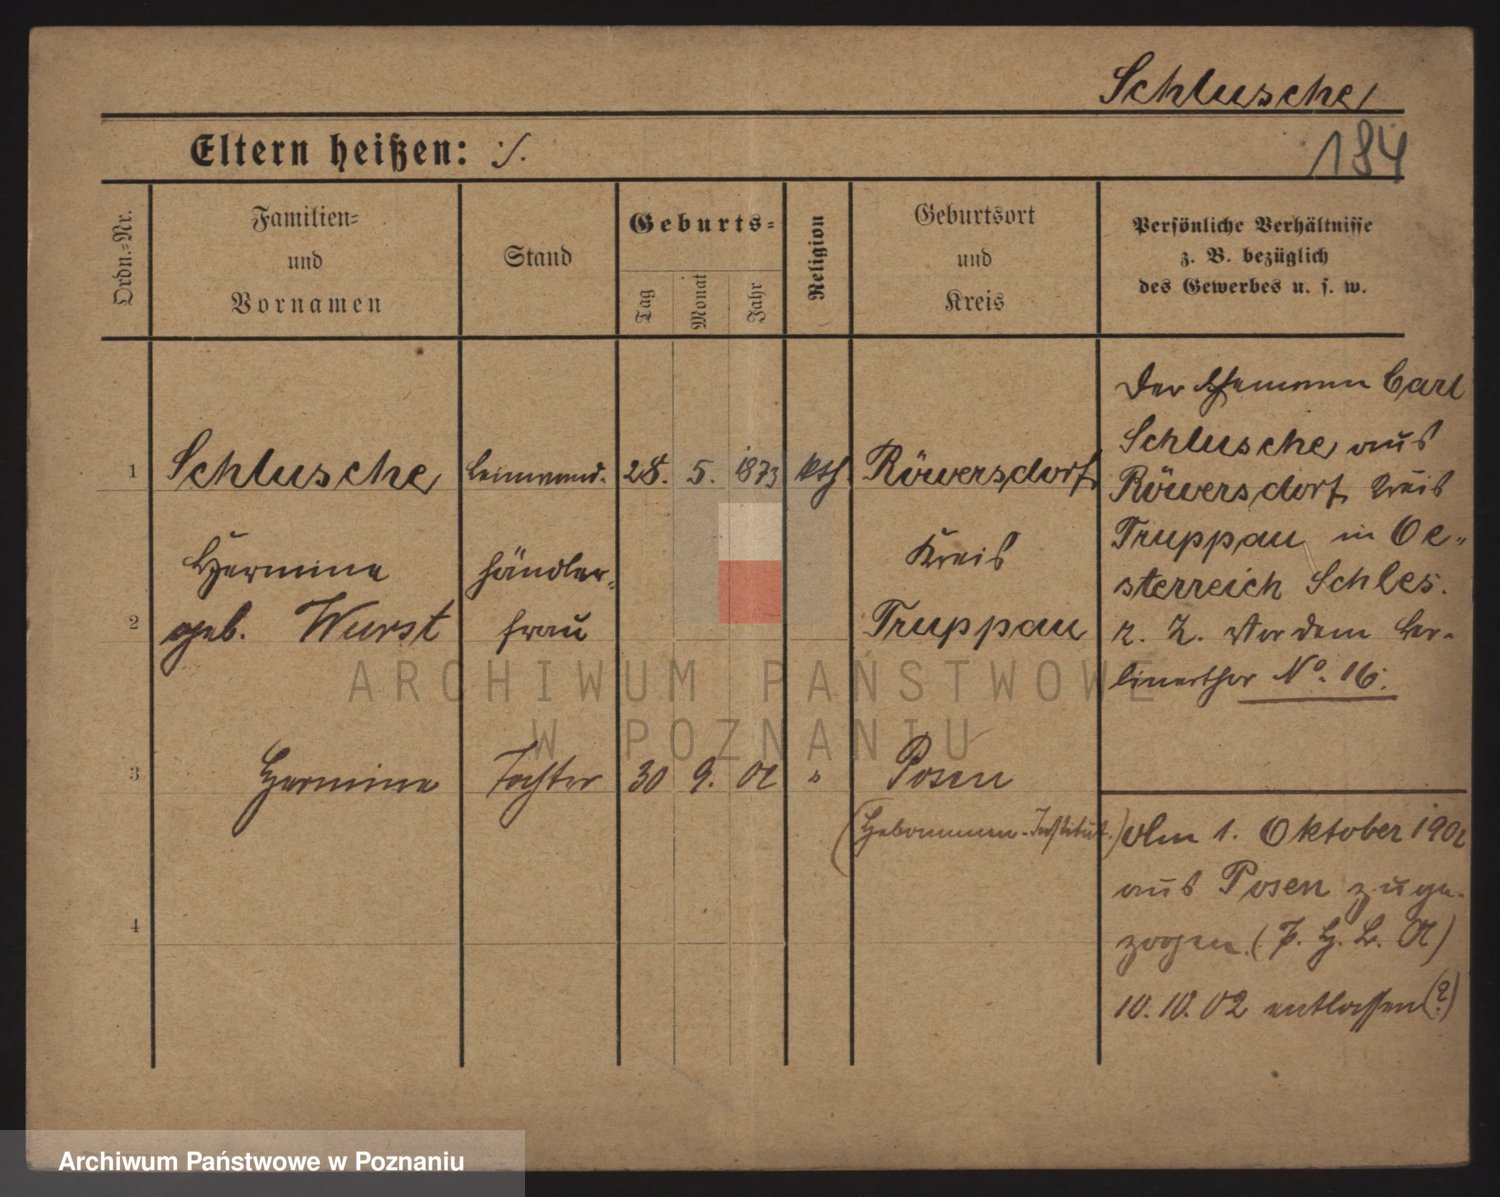 Schlusche
184
Eltern heißen: ./.
Ordn.-Nr.
Familien-
und
Vornamen
Stand
Geburts-
Tag
Monat
Jahr
Religion
Geburtsort
und
Kreis
Persönliche Verhältnisse
z. B. bezüglich
des Gewerbes u. s. w.
1 Schlusche Leinwand- 28. 5. 1873 kth. Röwersdorf
Hermine händler- Kreis
2 geb. Wurst frau Truppau
3 Hermine Tochter 30 9. 02 " Posen
(Hebammen-Institut.)
4
Der Ehemann Carl
Schlusche aus
Röwersdorf Kreis
Truppau in Oe-
sterreich Schles.
z. Z. Vor dem Ber-
linerthor No. 16.
Am 1. Oktober 1902
aus Posen zuge-
zogen. (P. H. L. A)
10.10.02 entlassen (?)
ARCHIWUM PAŃSTWOWE
W POZNANIU
Archiwum Państwowe w Poznaniu